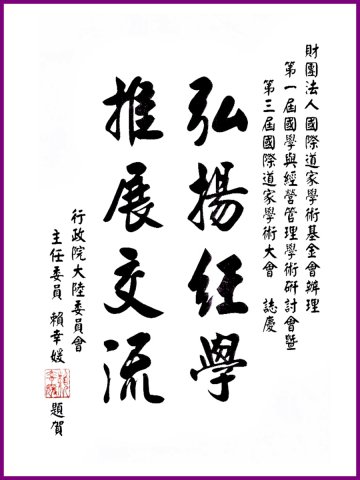 財團法人國際道家學術基金會辦理
第一屆國學與經營管理學術研討會暨
第三屆國際道家學術大會 誌慶
弘揚經學
推展交流
行政院大陸委員會
主任委員 賴幸媛 題賀